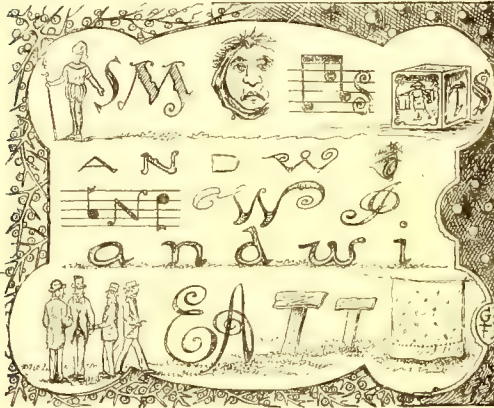 SM S S
AND W
N W &
andwi
EA TT